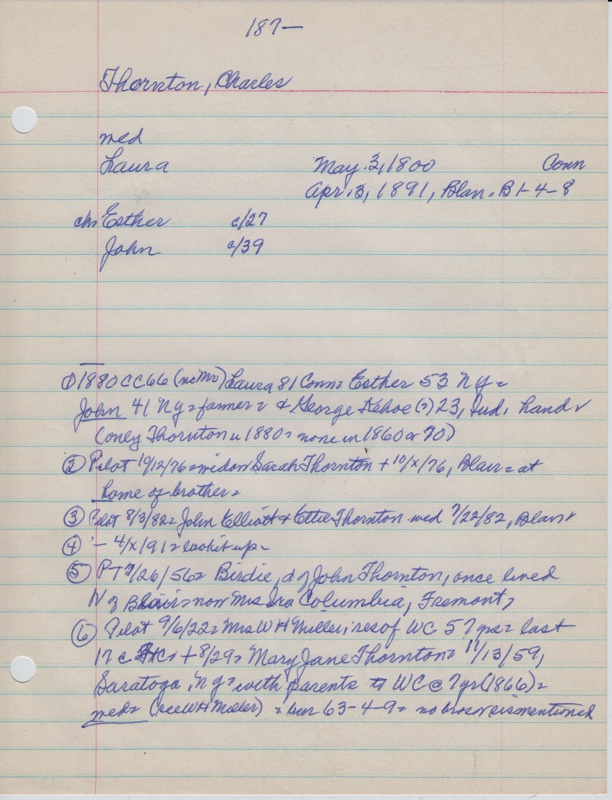 187—
Thornton, Charles
med
Laura May 3, 1800 Conn
Apr. 3, 1891, Blan. B1-4-8
chn Esther c/27
John c/39
① 1880 CC66 (no Mr) Laura 81 Conn = Esther 53 NY =
John 41 NY = farmer = & George Kehoe (?) 23, Ind, hand
(only Thornton in 1880 = none in 1860 or 70)
② Pilot 10/12/76 = widow Sarah Thornton + 10/x/76, Blair = at
home of brother =
③ Pilot 8/3/82 = John Elliott & Ettie Thornton med 7/22/82, Blair
④ " - 4/x/91 = look it up -
⑤ PT 9/26/56 = Birdie, d of John Thornton, once lived
N of Blair = now Mrs Ira Columbia, Fremont,
⑥ Pilot 9/6/22 = Mrs W H Miller, res of WC 57 yrs = last
17 + 8/29 = Mary Jane Thornton = 11/13/59,
Saratoga, NY = with parents to WC @ 7 yr (1866) =
med = (see WH Miller) = bur 63-4-9 = no bros or sis mentioned